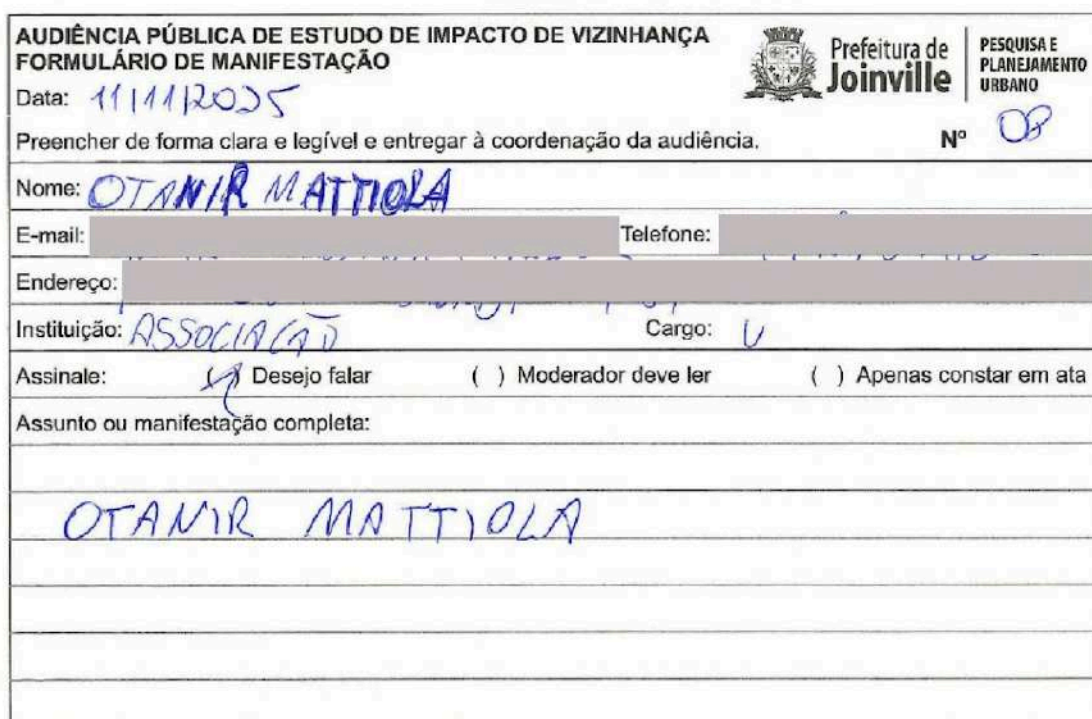 AUDIÊNCIA PÚBLICA DE ESTUDO DE IMPACTO DE VIZINHANÇA
FORMULÁRIO DE MANIFESTAÇÃO
Prefeitura de
Joinville
PESQUISA E
PLANEJAMENTO
URBANO
Data: 11/11/2025
Preencher de forma clara e legível e entregar à coordenação da audiência. Nº 08
Nome: OTANIR MATTIOLA
E-mail: Telefone:
Endereço:
Instituição: ASSOCIAÇÃO Cargo:
Assinale: ( ) Desejo falar ( ) Moderador deve ler ( ) Apenas constar em ata
Assunto ou manifestação completa:
OTANIR MATTIOLA